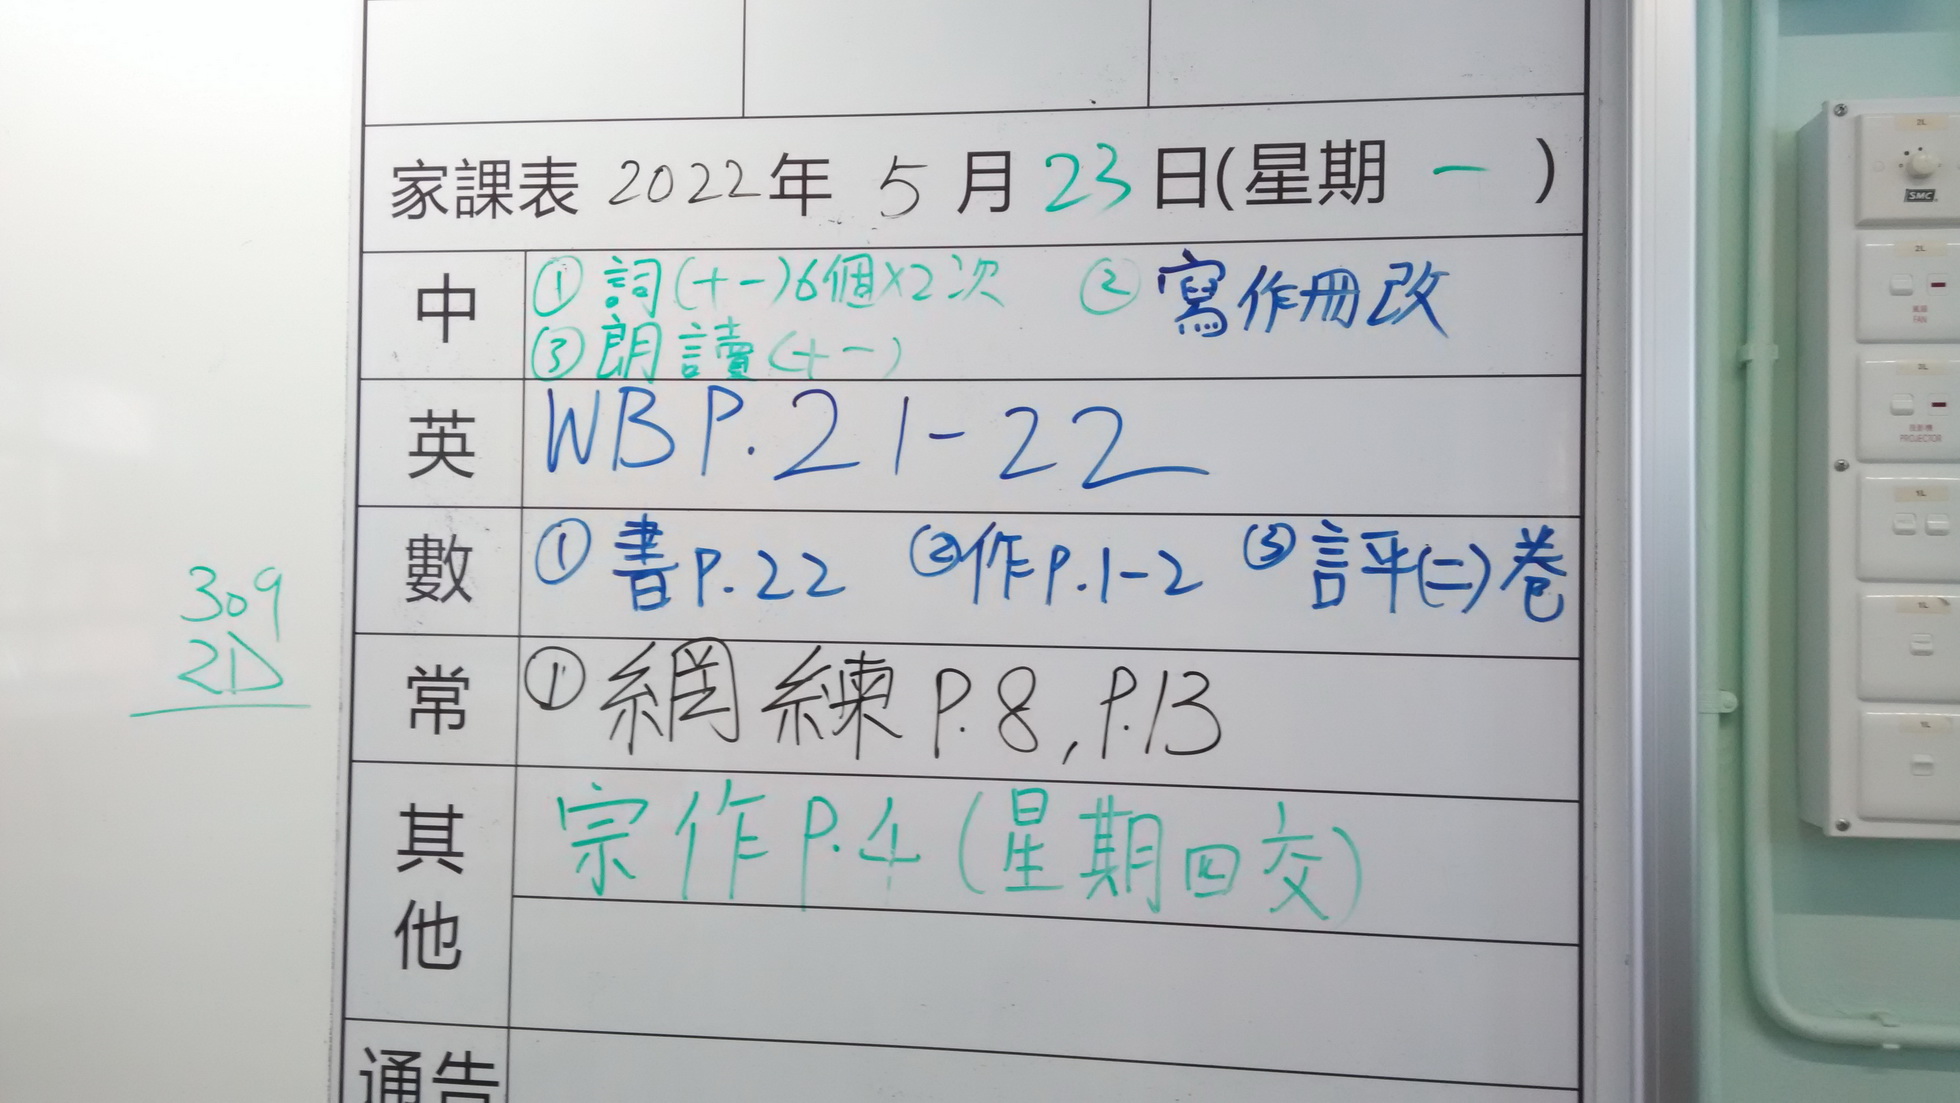 家課表 2022年 5月23日(星期 一 )
中 ①詞(十一)6個×2次 ②寫作冊改
③朗讀(十一)
英 WB P.21-22
數 ①書P.22 ②作P.1-2 ③評(二)卷
常 ①網練 P.8, P.13
其他 宗作P.4(星期四交)
通告
309
2D
SMC
FAN
PROJECTOR